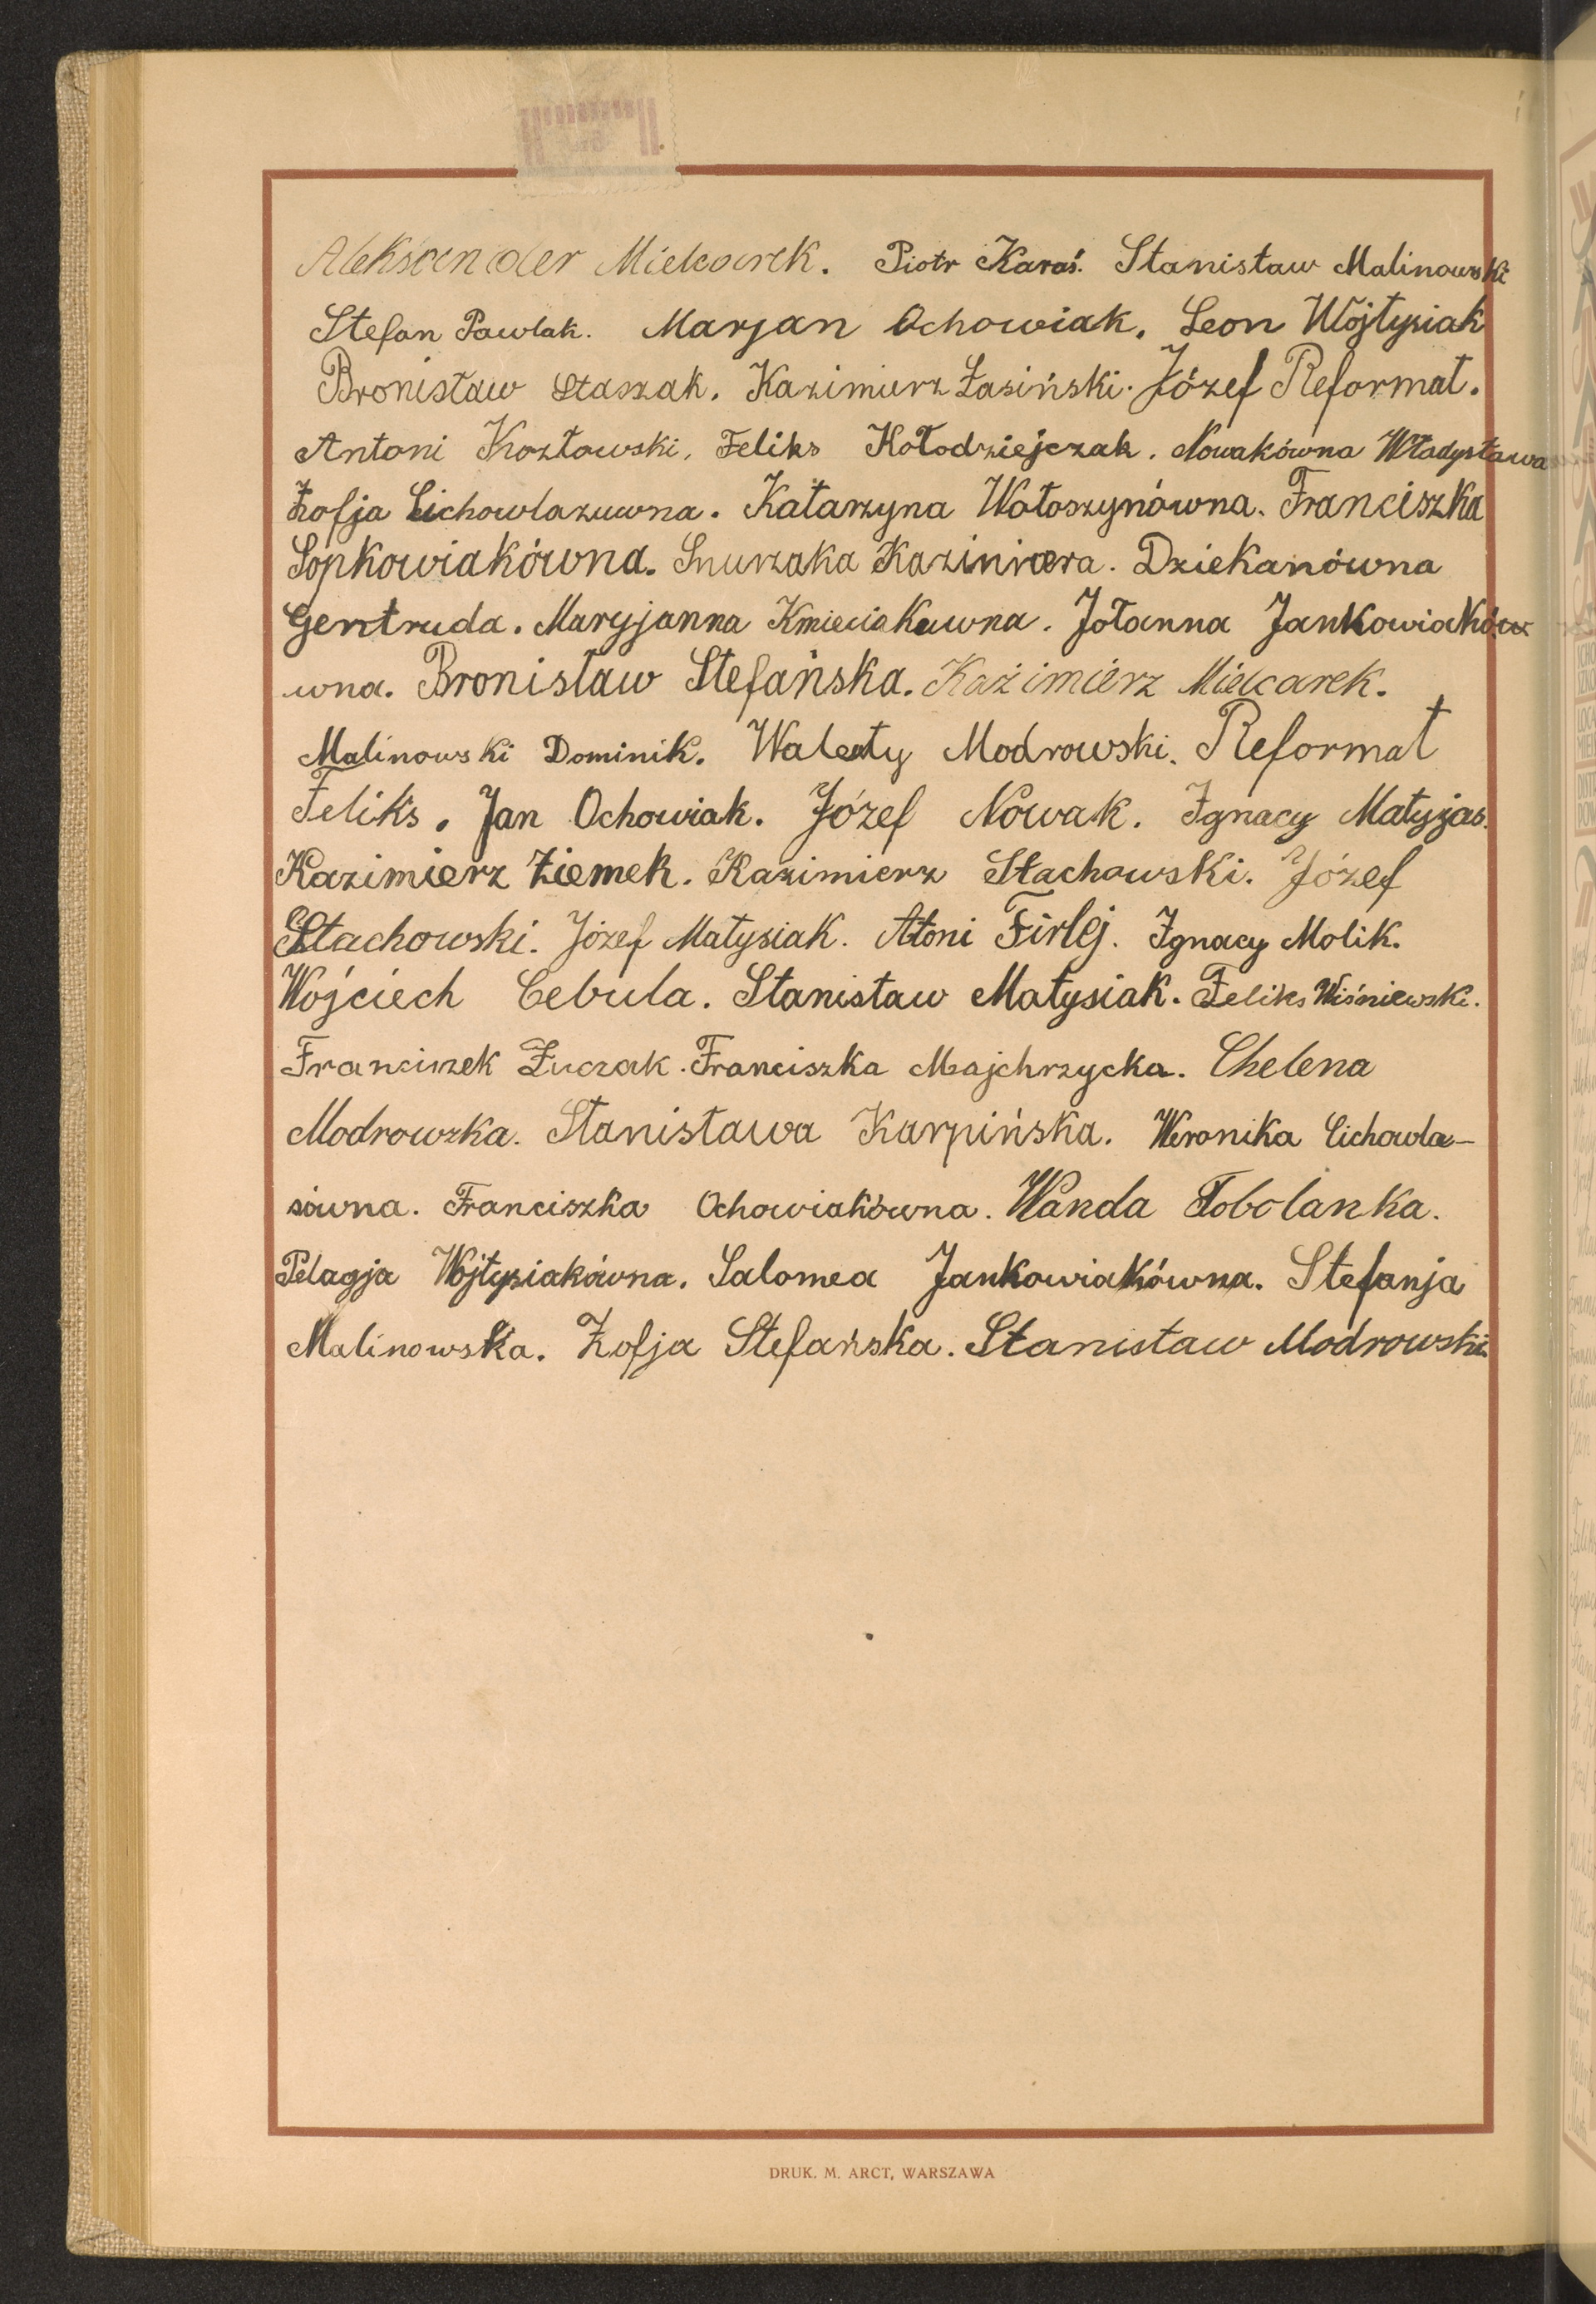 Aleksander Mielcarek. Piotr Karaś. Stanisław Malinowski
Stefan Pawlak. Marjan Ochowiak. Leon Wójtysiak
Bronisław Staszak. Kazimierz Łasiński. Józef Reformat.
Antoni Kozłowski. Feliks Kołodziejczak. Nowakówna Władysława
Zofja Cichowlazuwna. Katarzyna Wołoszynówna. Franciszka
Sopkowiakówna. Snurzaka Kazimiera. Dziekanówna
Gertruda. Maryjanna Kmieciakuwna. Jołanna Jankowiaków
wna. Bronisław Stefańska. Kaźimierz Mielcarek.
Malinowski Dominik. Walenty Modrowski. Reformat
Feliks. Jan Ochowiak. Józef Nowak. Ignacy Matyjas.
Kazimierz Ziemek. Kazimierz Stachowski. Józef
Stachowski. Józef Matysiak. Atoni Firlej. Ignacy Molik.
Wójciech Cebula. Stanisław Matysiak. Feliks Wiśniewski.
Franciszek Łuczak. Franciszka Majchrzycka. Chelena
Modrowzka. Stanisława Karpińska. Weronika Cichowla-
sówna. Franciszka Ochowiakówna. Wanda Tobolanka.
Pelagja Wójtysiakówna. Salomea Jankowiakówna. Stefanja
Malinowska. Zofja Stefańska. Stanisław Modrowski
DRUK. M. ARCT, WARSZAWA